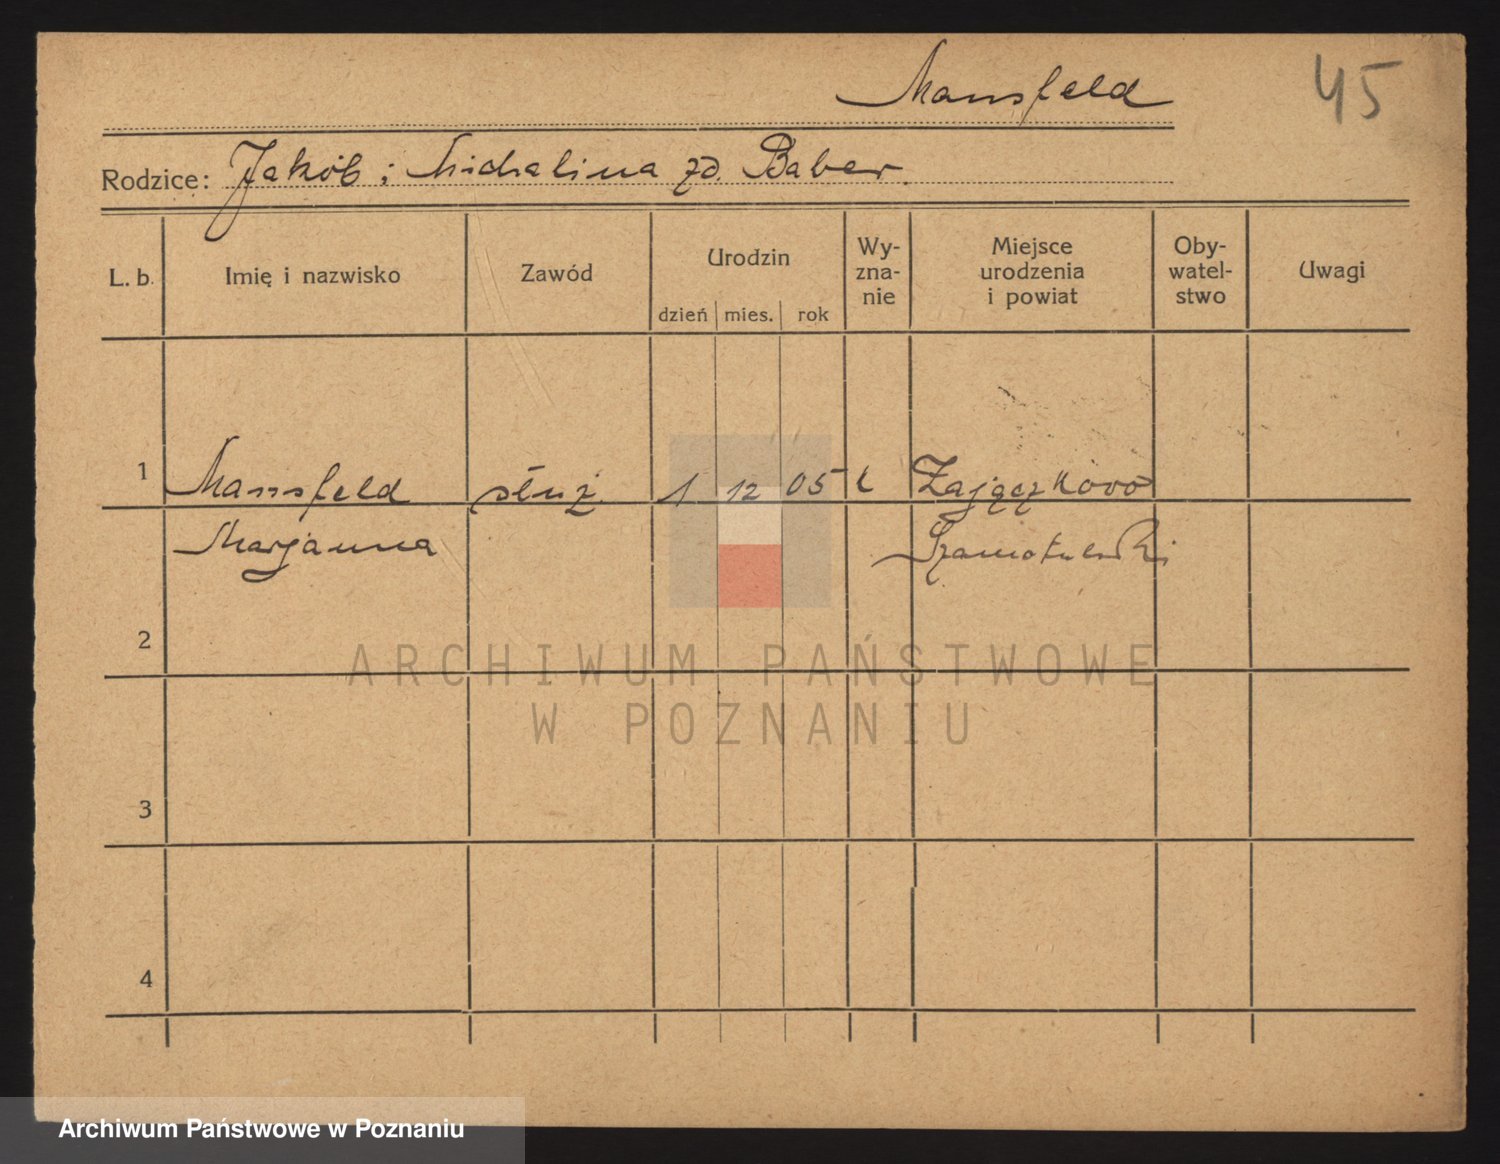 Mansfeld
45
Rodzice: Jakób i Michalina zd. Baber.
L. b.
Imię i nazwisko
Zawód
Urodzin
dzień mies. rok
Wy-
zna-
nie
Miejsce
urodzenia
i powiat
Oby-
watel-
stwo
Uwagi
1 Mansfeld służ. 1 12 05 k Zajączkowo
Marjanna Szamotulski
2
3
4
ARCHIWUM PAŃSTWOWE
W POZNANIU
Archiwum Państwowe w Poznaniu